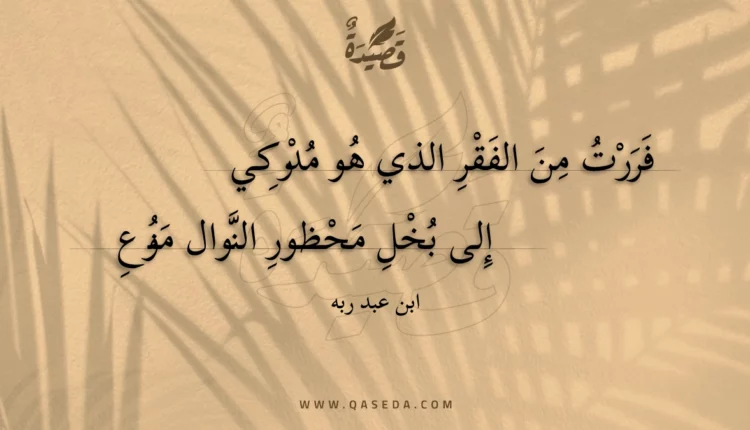 قَصِيْدَةٌ
فَرَرْتُ مِنَ الفَقْرِ الذي هُو مُدْوكِي
إِلى بُخْلِ مَحْظورِ النَّوال مَوُعِ
ابن عبد ربه
WWW.QASEDA.COM